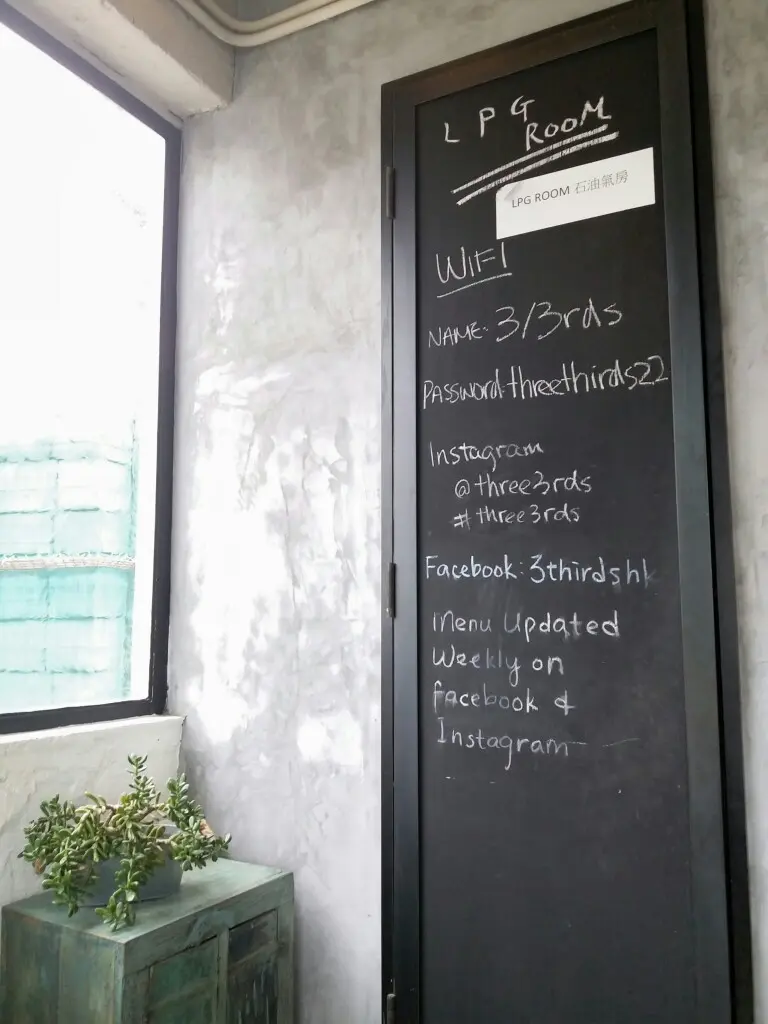 LPG
ROOM
LPG ROOM 石油氣房
WIFI
NAME: 3/3rds
PASSWORD:threethirds22
Instagram
@three3rds
#three3rds
Facebook: 3thirdshk
Menu Updated
Weekly on
facebook &
Instagram